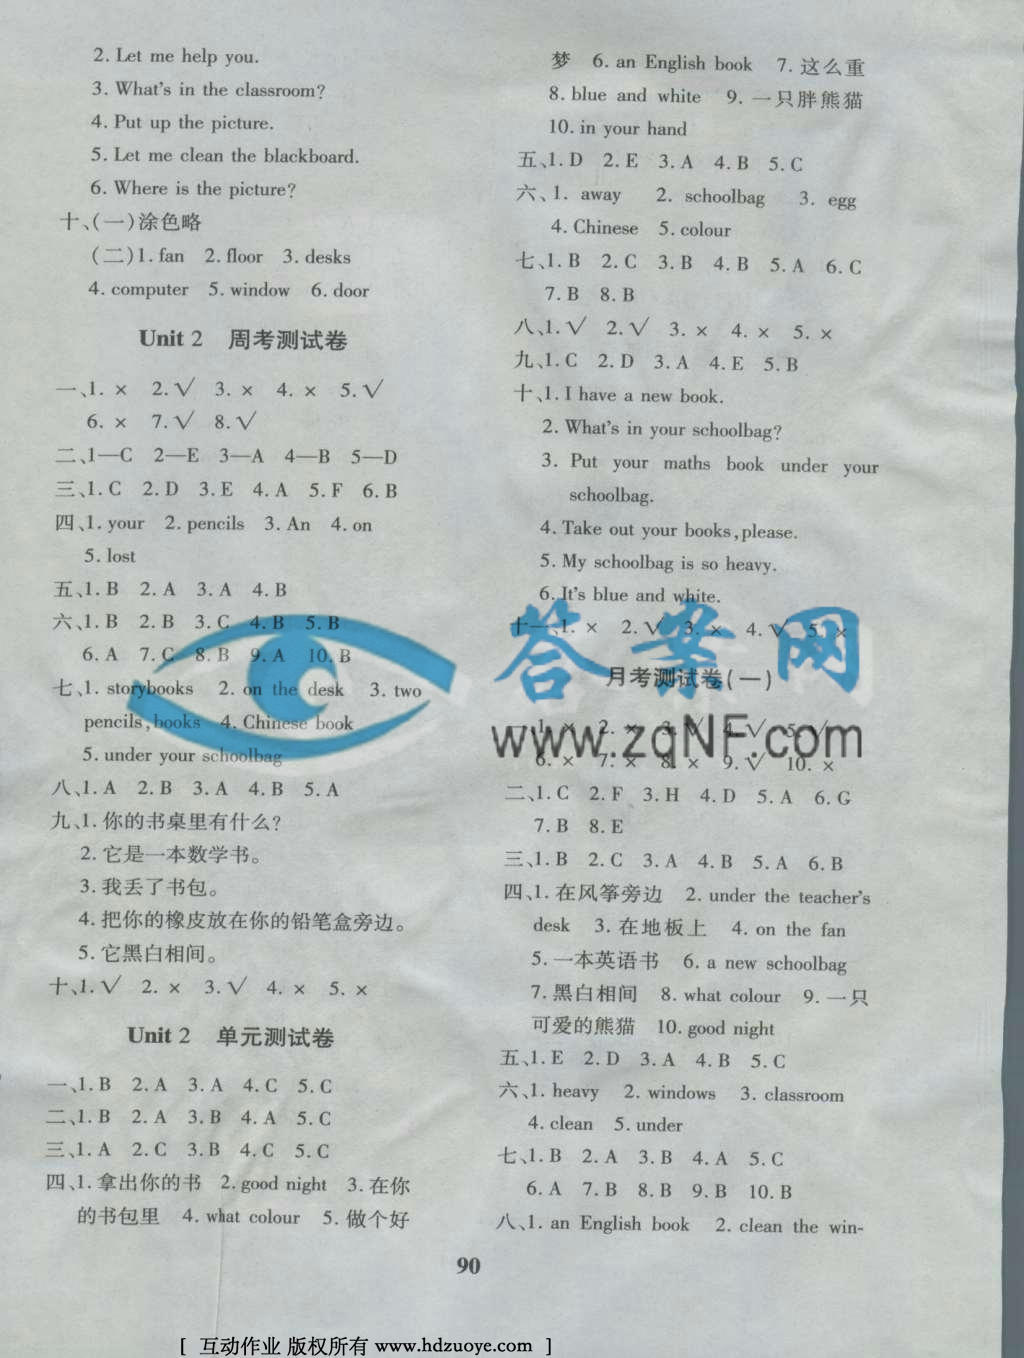 2. Let me help you.
3. What's in the classroom?
4. Put up the picture.
5. Let me clean the blackboard.
6. Where is the picture?
十、(一)涂色略
(二)1. fan 2. floor 3. desks
4. computer 5. window 6. door
Unit 2 周考测试卷
一、1. × 2. √ 3. × 4. × 5. √
6. × 7. √ 8. √
二、1—C 2—E 3—A 4—B 5—D
三、1. C 2. D 3. E 4. A 5. F 6. B
四、1. your 2. pencils 3. An 4. on
5. lost
五、1. B 2. A 3. A 4. B
六、1. B 2. B 3. C 4. B 5. B
6. A 7. C 8. B 9. A 10. B
七、1. storybooks 2. on the desk 3. two
pencils, books 4. Chinese book
5. under your schoolbag
八、1. A 2. B 3. A 4. B 5. A
九、1. 你的书桌里有什么?
2. 它是一本数学书。
3. 我丢了书包。
4. 把你的橡皮放在你的铅笔盒旁边。
5. 它黑白相间。
十、1. √ 2. × 3. √ 4. × 5. ×
Unit 2 单元测试卷
一、1. B 2. A 3. A 4. C 5. C
二、1. B 2. A 3. B 4. A 5. C
三、1. A 2. C 3. B 4. C 5. C
四、1. 拿出你的书 2. good night 3. 在你
的书包里 4. what colour 5. 做个好
梦 6. an English book 7. 这么重
8. blue and white 9. 一只胖熊猫
10. in your hand
五、1. D 2. E 3. A 4. B 5. C
六、1. away 2. schoolbag 3. egg
4. Chinese 5. colour
七、1. B 2. C 3. B 4. B 5. A 6. C
7. B 8. B
八、1. √ 2. √ 3. × 4. × 5. ×
九、1. C 2. D 3. A 4. E 5. B
十、1. I have a new book.
2. What's in your schoolbag?
3. Put your maths book under your
schoolbag.
4. Take out your books, please.
5. My schoolbag is so heavy.
6. It's blue and white.
十一、1. × 2. √ 3. × 4. √ 5. ×
答案网
月考测试卷(一)
www.zqNF.com
一、1. × 2. × 3. √ 4. √ 5. √
6. × 7. × 8. × 9. √ 10. ×
二、1. C 2. F 3. H 4. D 5. A 6. G
7. B 8. E
三、1. B 2. C 3. A 4. B 5. A 6. B
四、1. 在风筝旁边 2. under the teacher's
desk 3. 在地板上 4. on the fan
5. 一本英语书 6. a new schoolbag
7. 黑白相间 8. what colour 9. 一只
可爱的熊猫 10. good night
五、1. E 2. D 3. A 4. B 5. C
六、1. heavy 2. windows 3. classroom
4. clean 5. under
七、1. B 2. A 3. B 4. A 5. C
6. A 7. B 8. B 9. B 10. B
八、1. an English book 2. clean the win-
90
[ 互动作业 版权所有 www.hdzuoye.com ]